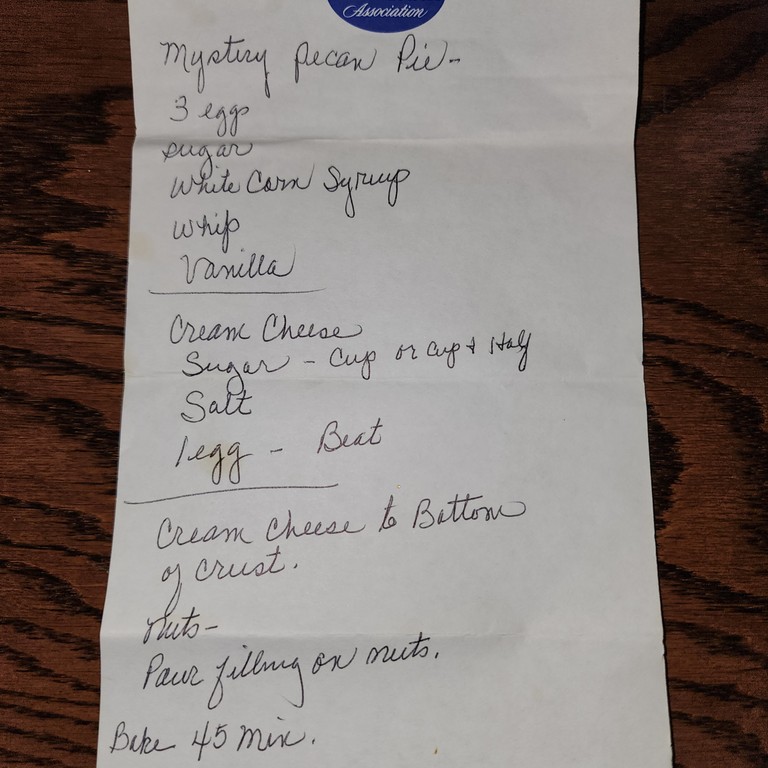 Association
Mystery Pecan Pie-
3 eggs
sugar
White Corn Syrup
Whip
Vanilla
Cream Cheese
Sugar - Cup or cup & Half
Salt
1 egg - Beat
Cream Cheese to Bottom
of crust.
Nuts-
Pour filling on nuts.
Bake 45 Min.